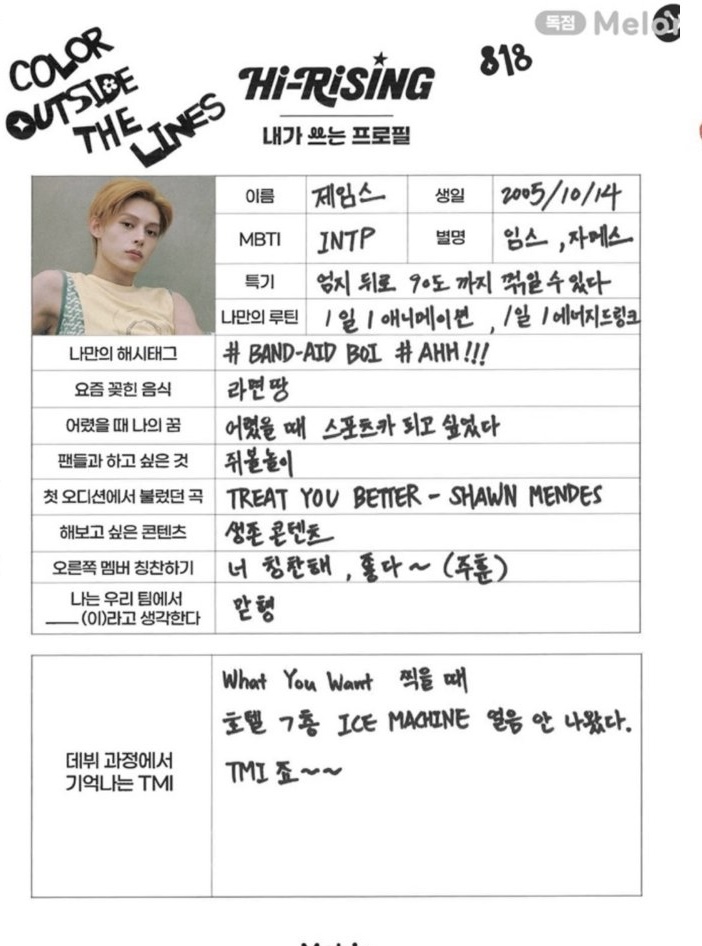 독점 Melon
COLOR
OUTSIDE
THE
LINES
Hi-RiSiNG
818
내가 쓰는 프로필
이름 제임스 생일 2005/10/14
MBTI INTP 별명 임스, 자메스
특기 엄지 뒤로 90도 까지 꺾일 수 있다
나만의 루틴 1일 1애니메이션, 1일 1에너지드링크
나만의 해시태그 # BAND-AID BOI # AHH!!!
요즘 꽂힌 음식 라면땅
어렸을 때 나의 꿈 어렸을 때 스포츠카 되고 싶었다
팬들과 하고 싶은 것 쥐불놀이
첫 오디션에서 불렀던 곡 TREAT YOU BETTER - SHAWN MENDES
해보고 싶은 콘텐츠 생존 콘텐츠
오른쪽 멤버 칭찬하기 너 칭찬해, 좋다~ (주훈)
나는 우리 팀에서
___ (이)라고 생각한다 맏형
What You Want 찍을 때
호텔 7층 ICE MACHINE 얼음 안 나왔다.
데뷔 과정에서
기억나는 TMI
TMI 죠~~